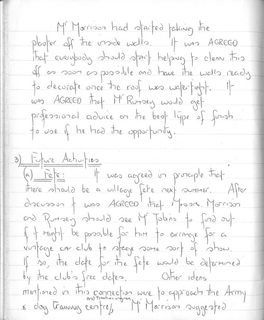 Mr Morrison had started taking the
plaster off the inside walls. It was AGREED
that everybody should start helping to clean this
off as soon as possible and have the walls ready
to decorate once the roof was watertight. It
was AGREED that Mr Rumsey would get
professional advice on the best type of finish
to use if he had the opportunity.
3) Future Activities
(a) Fete: It was agreed in principle that
there should be a village fete next summer. After
discussion it was AGREED that Messrs Morrison
and Rumsey should see Mr Tobins to find out
if it might be possible for him to arrange for a
vintage car club to stage some sort of show.
If so, the date for the fete would be determined
by the club's free dates. Other ideas
mentioned in this connection were to approach the Army
& day training centre, Mr Morrison suggested